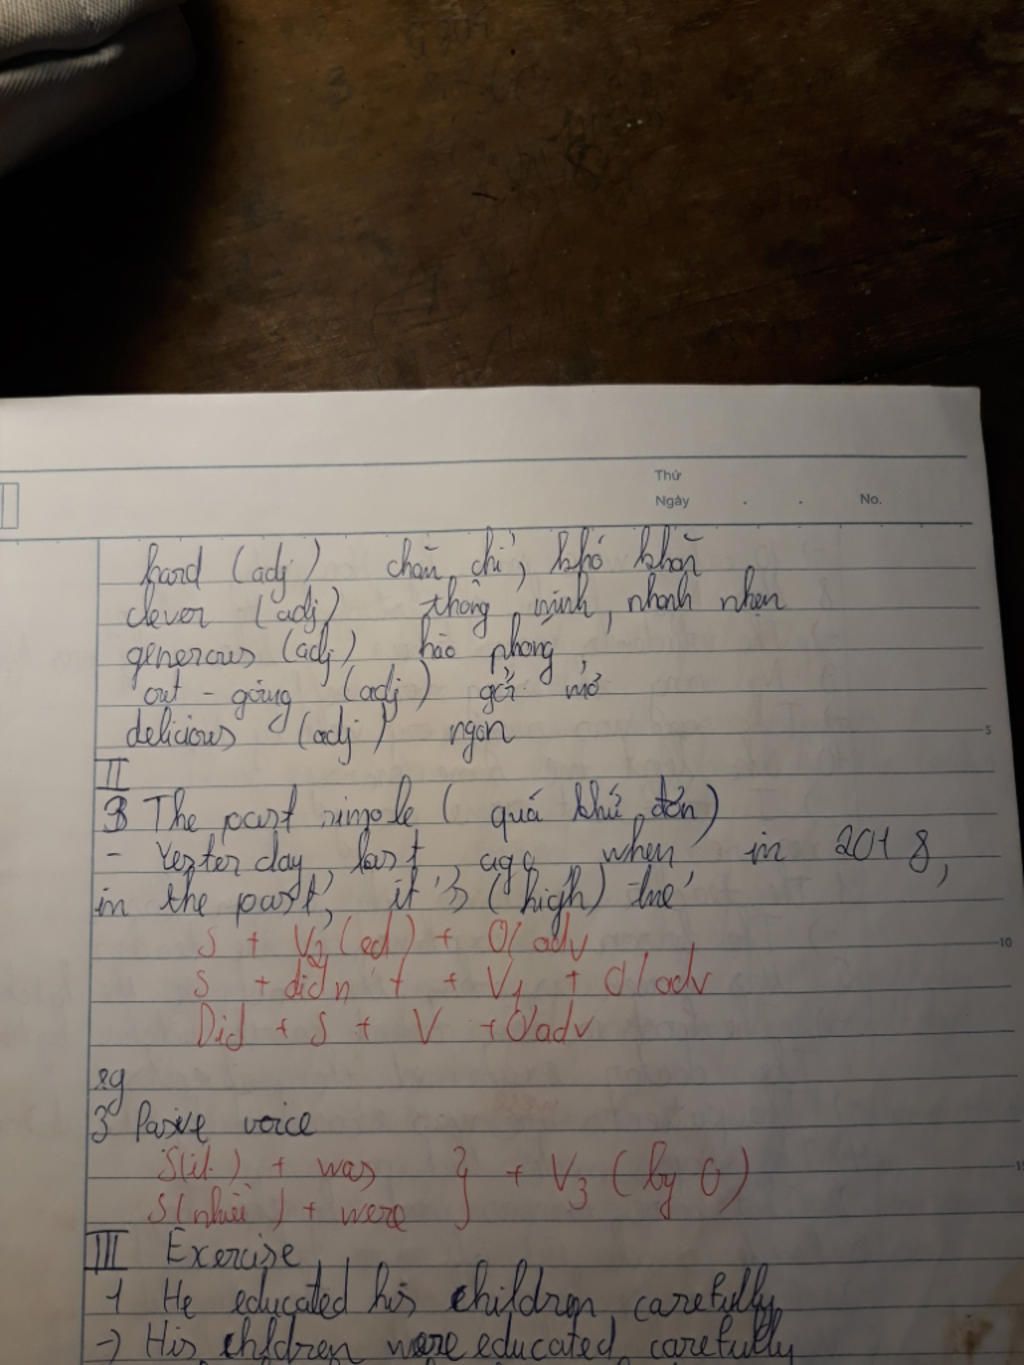 Thứ
Ngày . . No.
hard (adj) chăm chỉ, khó khăn
clever (adj) thông minh, nhanh nhẹn
generous (adj) hào phóng
out - going (adj) cởi mở
delicious (adj) ngon
5
II
3 The past simple ( quá khứ đơn)
- Yesterday, last, ago, when in 2018,
in the past, it's (high) time
S + V2 (ed) + O/adv
10
S + didn't + V1 + O/adv
Did + S + V + O/adv
eg
3 Pasive voice
S(ít) + was } + V3 (by O)
S(nhiều) + were
III Exercise
1 He educated his children carefully
-> His chldren were educated carefully